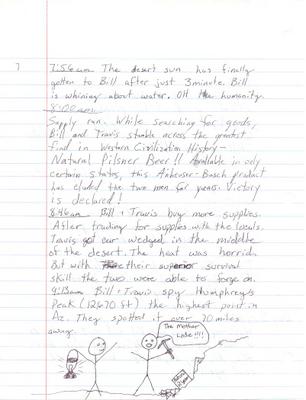 7
7:56am The desert sun has finally
gotten to Bill after just 3 minute. Bill
is whining about water. Oh the humanity.
8:00am
Supply run. While searching for goods,
Bill and Travis stumble across the greatest
find in Western Civilization History-
Natural Pilsner Beer!! Available in only
certain states, this Anheuser-Bosch product
has eluded the two men for years. Victory
is declared!
8:46am Bill + Travis buy more supplies.
After trading for supplies with the locals,
Travis got our wedged in the middle
of the desert. The heat was horrid.
But with their superior survival
skill the two were able to forge on.
9:13am Bill + Travis spy Humphreys
Peak (12670 ft) the highest point in
Az. They spotted it over 70 miles
away.
The Mother
Lode!!!!